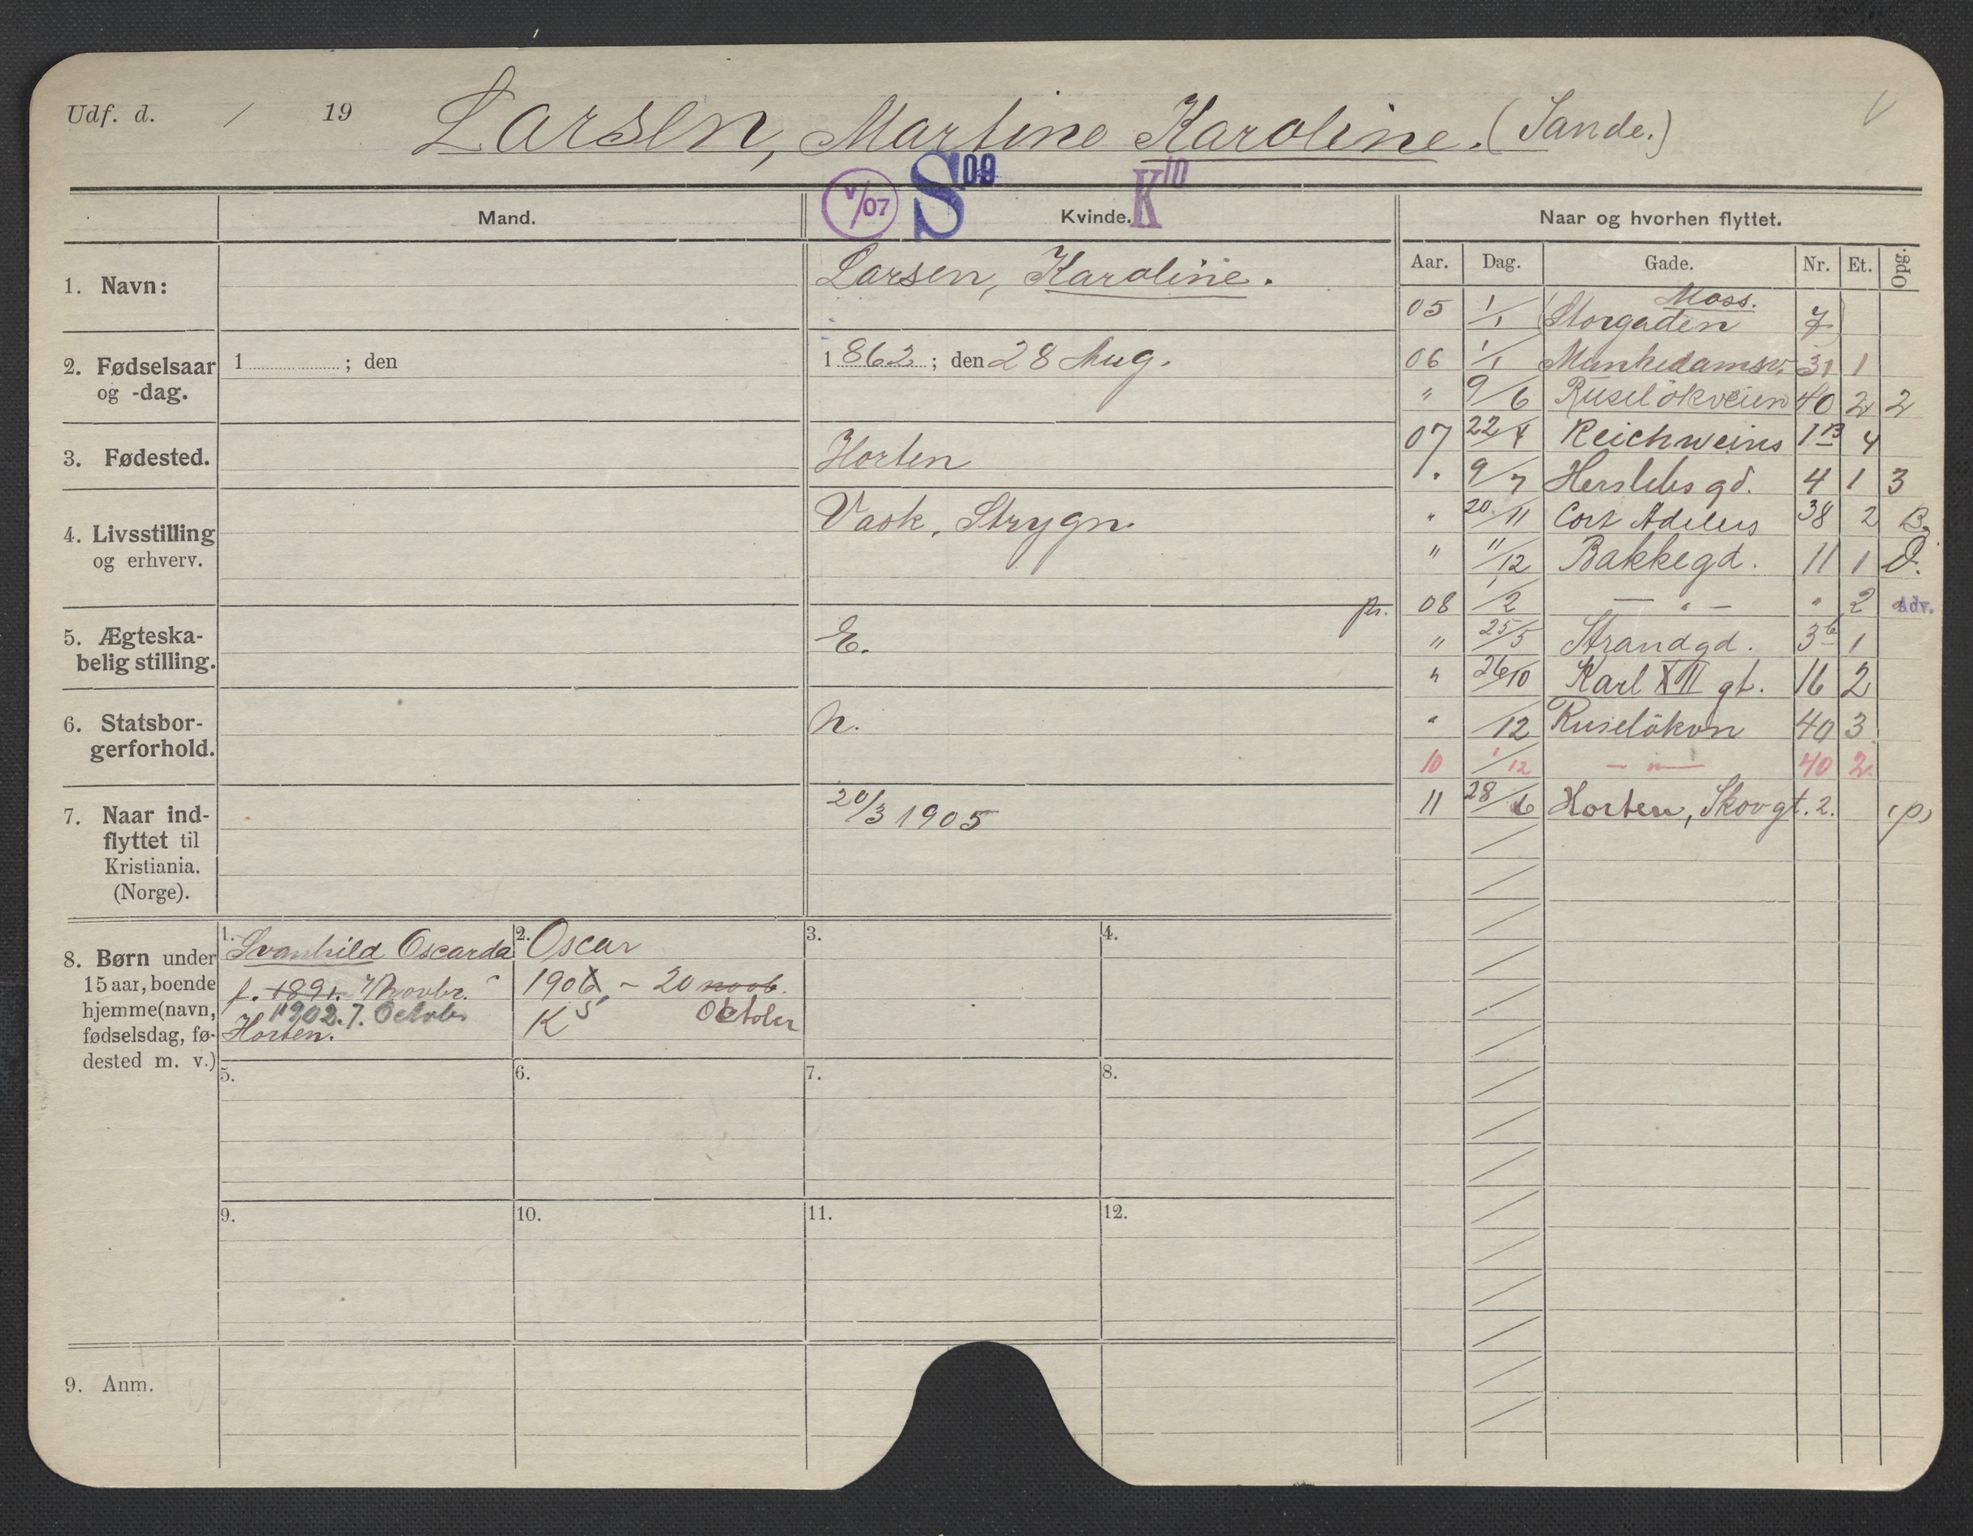 Udf. d. / 19 Larsen, Martine Karoline. (Sande.)
V/07 S 09 K 10
Mand. Kvinde. Naar og hvorhen flyttet.
Aar. Dag. Gade. Nr. Et. Opg.
1. Navn: Larsen, Karoline.
2. Fødselsaar og -dag. 1 ; den 1862 ; den 28 Aug.
3. Fødested. Horten
4. Livsstilling og erhverv. Vask, Strygn.
5. Ægteska-
belig stilling. E.
6. Statsbor-
gerforhold. n.
7. Naar ind-
flyttet til
Kristiania.
(Norge). 20/3 1905
05 1/1 (Storgaden Moss. 7)
06 1/1 Munkedamsv. 31 1
" 9/6 Ruselökveien 40 2 2
07 22/4 Reichweins 1 B 4
" 9/7 Herslebs gd. 4 1 3
" 20/11 Cort Adelers 38 2 B.
" 11/12 Bakkegd. 11 1 O.
pr. 08 1/2 — " — " 2 Adv.
" 25/5 Strandgd. 3b 1
" 26/10 Karl XII gt. 16 2
" /12 Ruselökvn 40 3
10 1/12 — " — 40 2
11 28/6 Horten, Skovgt. 2. (p)
8. Børn under
15 aar, boende
hjemme (navn,
fødselsdag, fø-
dested m. v.)
1. Svanhild Oscarda
f. 1891. 7/Novbr.
1902. 7. October
Horten.
2. Oscar
1906 5 - 20 novb.
K October
3.
4.
5.
6.
7.
8.
9.
10.
11.
12.
9. Anm.